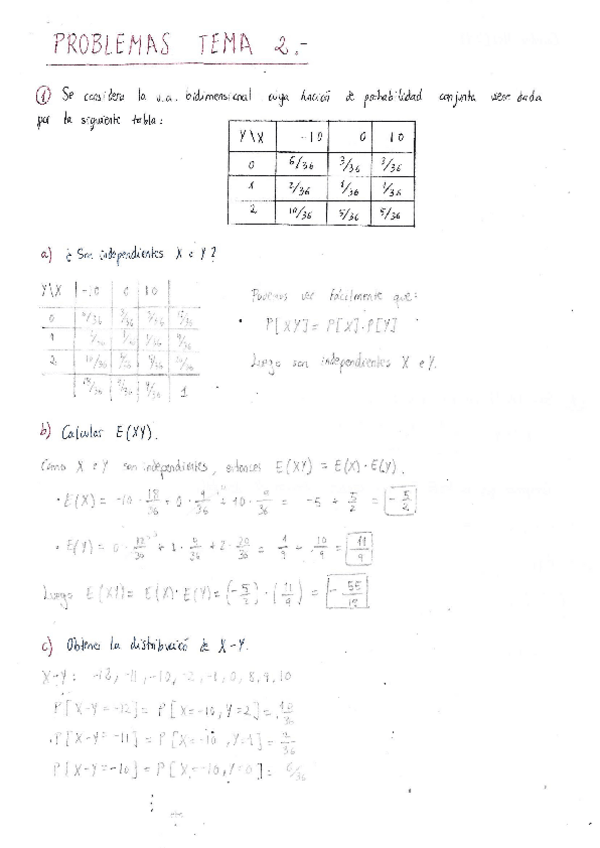 PROBLEMAS TEMA 2.-
① Se considera la v.a. bidimensional cuya función de probabilidad conjunta viene dada
por la siguiente tabla:
Y\X -10 0 10
0 6/36 3/36 3/36
1 2/36 1/36 1/36
2 10/36 5/36 5/36
a) ¿Son independientes X e Y?
Y\X -10 0 10
0 6/36 3/36 3/36 12/36
2 10/36
18/36 9/36 9/36 1
Podemos ver fácilmente que:
• P[XY] = P[X]·P[Y]
Luego son independientes X e Y.
b) Calcular E(XY).
Como X e Y son independientes, entonces E(XY) = E(X)·E(Y).
• E(X) = -10 · 18/36 + 0 · 9/36 + 10 · 9/36 = -5 + 5/2 = -5/2
• E(Y) = 0 · 12/36 + 1 · 4/36 + 2 · 20/36 = 1/9 + 10/9 = 11/9
Luego E(XY) = E(X)·E(Y) = (-5/2) · (11/9) = -55/18
c) Obtener la distribución de X-Y.
X-Y: -12, -11, -10, -2, -1, 0, 8, 9, 10
P[X-Y=-12] = P[X=-10, Y=2] = 10/36
P[X-Y=-11] = P[X=-10, Y=1] = 2/36
P[X-Y=-10] = P[X=-10, Y=0] = 6/36
⋮